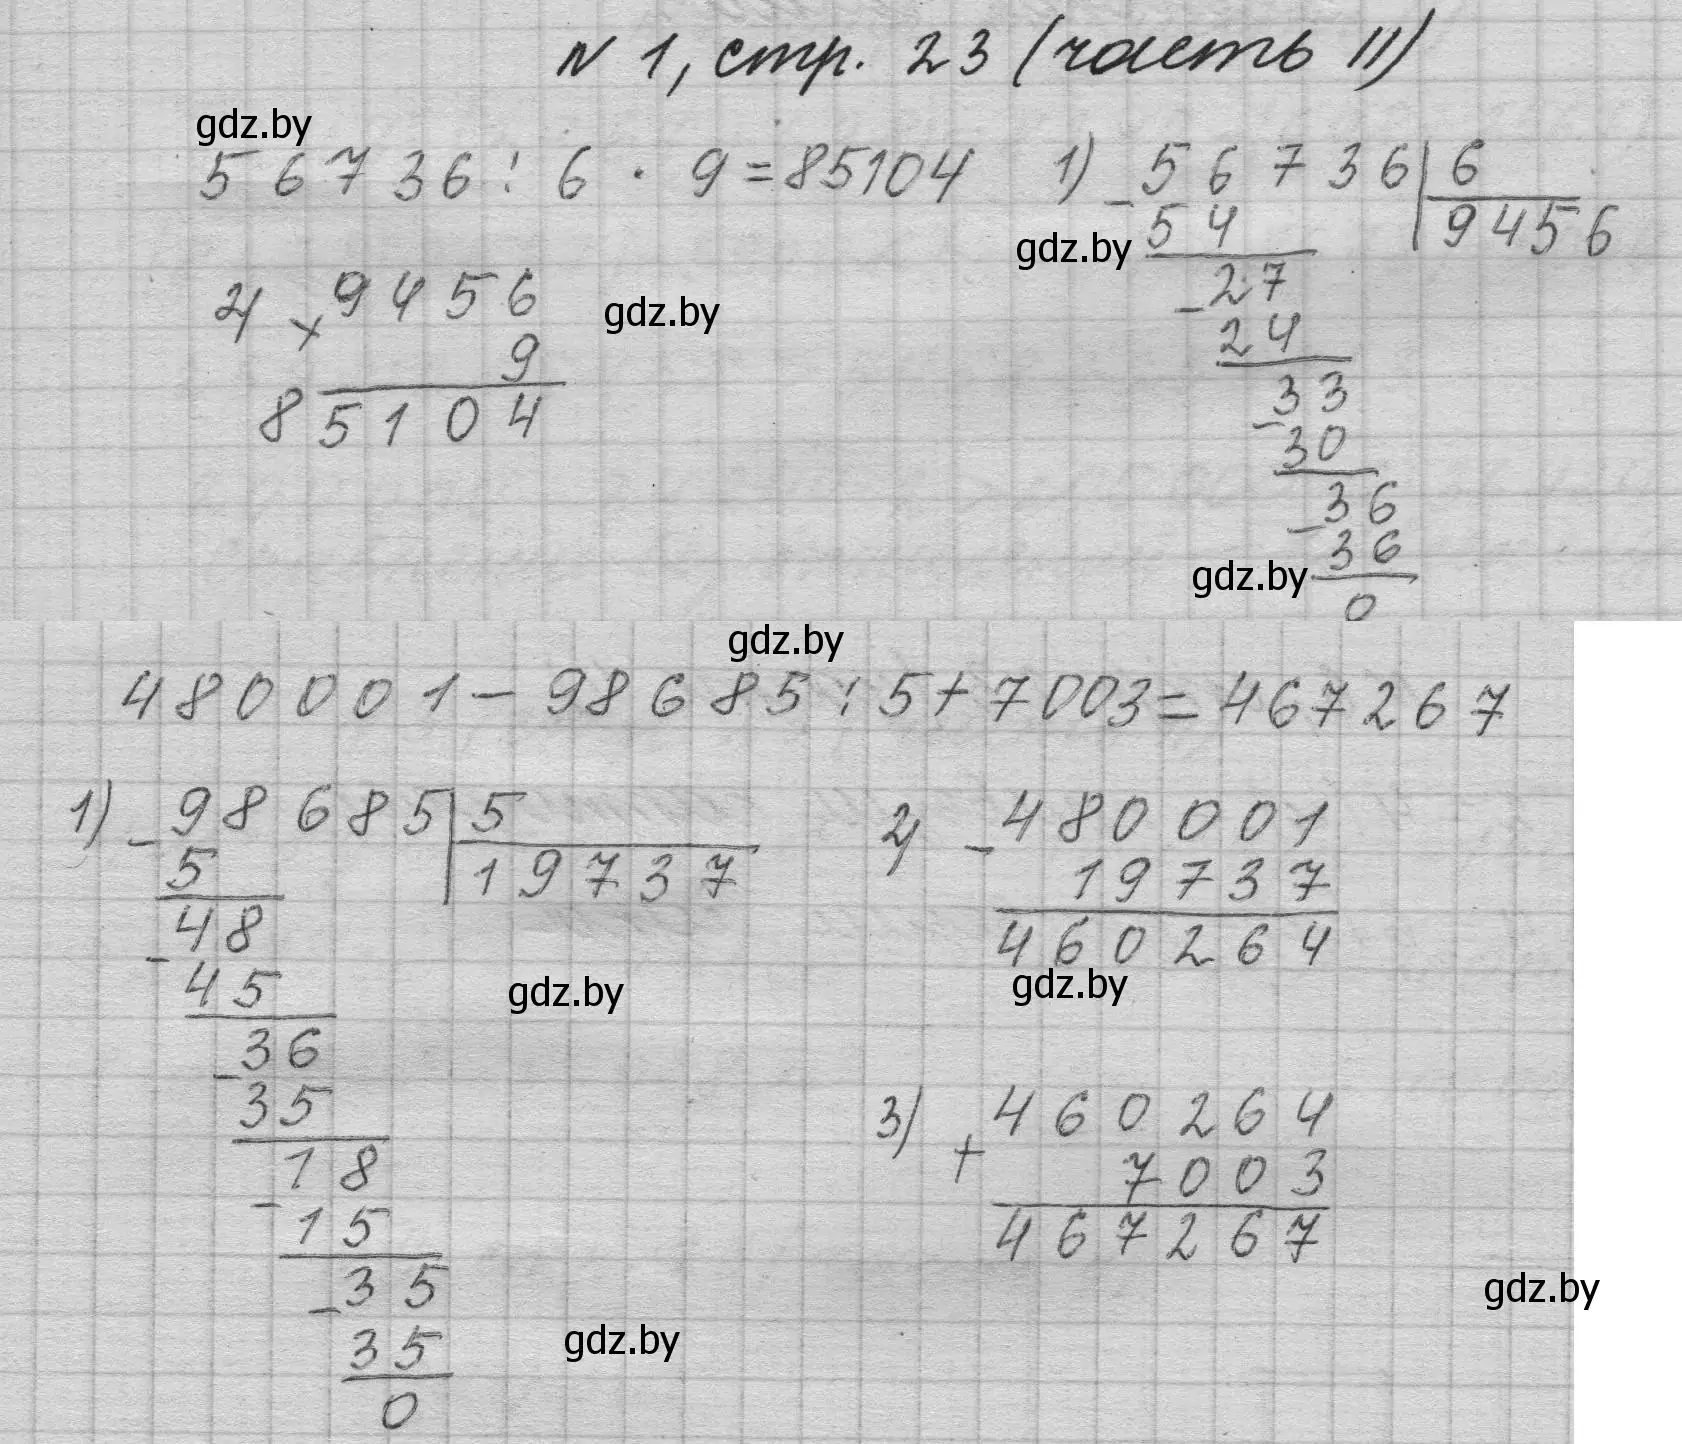 N 1, стр. 23 (часть II)
gdz.by
56736 : 6 · 9 = 85104
1) - 56736 | 6
54 9456
gdz.by
- 27
24
- 33
30
- 36
36
gdz.by
0
2) × 9456
gdz.by
9
85104
gdz.by
480001 - 98685 : 5 + 7003 = 467267
1) - 98685 | 5
5 19737
- 48
45
gdz.by
- 36
35
- 18
15
- 35
gdz.by
35
0
2) - 480001
19737
460264
gdz.by
3) + 460264
7003
467267
gdz.by